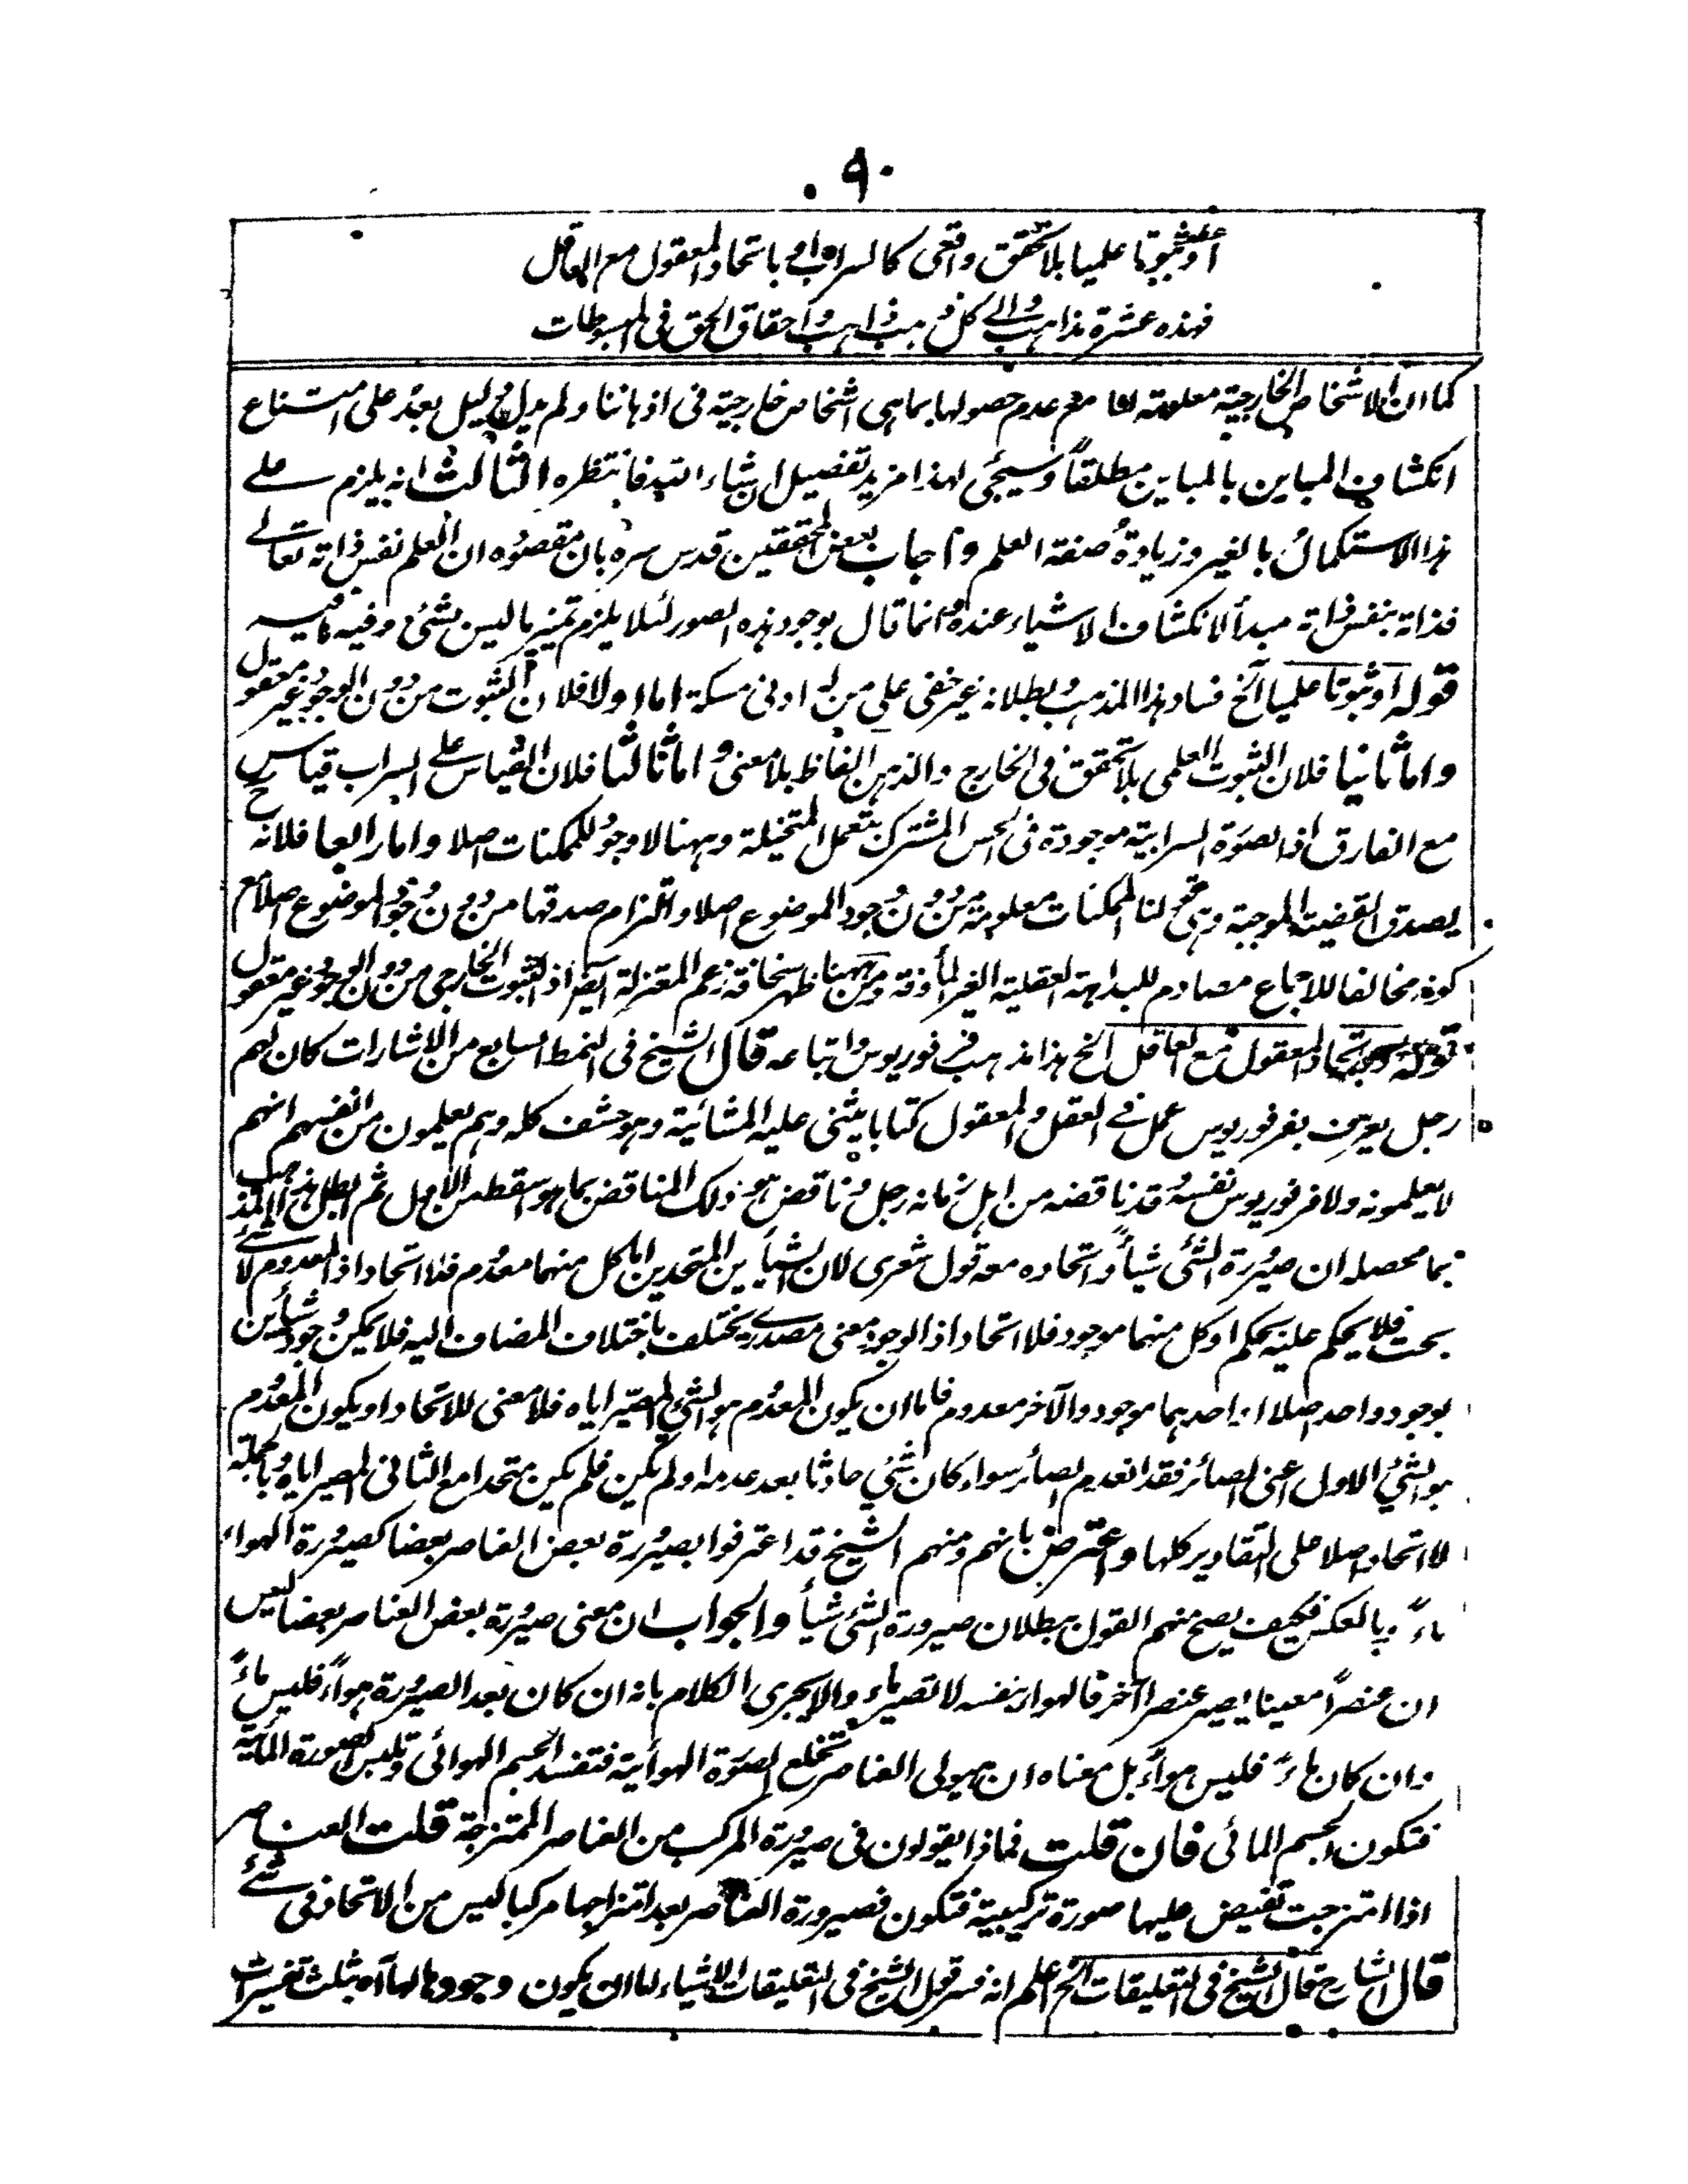 ۹۰
او ثبوتا علميا بلا تحقق واقعى كالسراب او باتحاد المعقول مع العاقل
فهذه عشرة مذاهب والى كل ذهب ذاهب واحقاق الحق فى المبسوطات
كما ان الاشخاص الخارجية معلومة لنا مع عدم حصولها بما هى اشخاص خارجية فى اذهاننا ولم يدل دليل بعد على امتناع
انكشاف المباين بالمباين مطلقاً وسيجئ لهذا مزيد تفصيل ان شاء الله فانتظره الثالث انه يلزم على
هذا الاستكمال بالغير وزيادة صفة العلم واجاب بعض المحققين قدس سره بان مقصوده ان العلم نفس ذاته تعالى
فذاته بنفس ذاته مبدأ لانكشاف الاشياء عنده وانما قال بوجود هذه الصور لئلا يلزم تميز ما ليس بشئ وفيه ما فيه
قوله او ثبوتا علميا الخ فساد هذا المذهب وبطلانه غير خفى على من له ادنى مسكة اما اولا فلان الثبوت من دون الوجود غير معقول
واما ثانيا فلان الثبوت العلمى بلا تحقق فى الخارج والذهن الفاظ بلا معنى واما ثالثا فلان القياس على السراب قياس
مع الفارق اذ الصورة السرابية موجودة فى الحس المشترك بتعمل المتخيلة وههنا لا وجود للممكنات اصلا واما رابعا فلانه ح
يصدق القضية الموجبة وهى قولنا الممكنات معلومة من دون وجود الموضوع اصلا والتزام صدقها من دون وجود الموضوع اصلا مع
كونه مخالفا للاجماع مصادم للبداهة العقلية الغير المأوفة ومن ههنا ظهر سخافة زعم المعتزلة ايضا اذ الثبوت الخارجى من دون الوجود غير معقول
قوله او باتحاد المعقول مع العاقل الخ هذا مذهب فرفوريوس واتباعه قال الشيخ فى النمط السابع من الاشارات كان لهم
رجل يعرف بفرفوريوس عمل فى العقل والمعقول كتابا يثنى عليه المشائية وهو حشف كله وهم يعلمون من انفسهم انهم
لا يعلمونه ولا فرفوريوس نفسه وقد ناقضه من اهل زمانه رجل وناقض هو ذلك المناقض بما هو اسقط من الاول ثم ابطل هذا المذهب
بما محصله ان صيرورة الشئ شيأً واتحاده معه قول شعرى لان الشيأين المتحدين اما كل منهما معدوم فلا اتحاد اذ المعدوم لا شئ
بحت فلا يحكم عليه بحكم او كل منهما موجود فلا اتحاد اذ الوجود معنى مصدرى يختلف باختلاف المضاف اليه فلا يمكن وجود شيأين
بوجود واحد اصلا او احدهما موجود والآخر معدوم فاما ان يكون المعدوم هو الشئ المصيّر اياه فلا معنى للاتحاد او يكون المعدوم
هو الشئ الاول اعنى الصائر فقد انعدم الصائر سواء كان شئ حادثا بعد عدمه او لم يكن فلم يكن متحدا مع الثانى المصير اياه وبالجملة
لا اتحاد اصلا على التقادير كلها واعترض بانهم ومنهم الشيخ قد اعترفوا بصيرورة بعض العناصر بعضا كصيرورة الهواء
ماءً وبالعكس فكيف يصح منهم القول ببطلان صيرورة الشئ شيأ والجواب ان معنى صيرورة بعض العناصر بعضا ليس
ان عنصراً معينا يصير عنصرا آخر فالهواء بنفسه لا تصير ماء والا يجرى الكلام بانه ان كان بعد الصيرورة هواءً فليس ماءً
وان كان ماءً فليس هواءً بل معناه ان هيولى العناصر تخلع الصورة الهوائية فتفسد الجسم الهوائى وتلبس الصورة المائية
فتكون الجسم المائى فان قلت فماذا يقولون فى صيرورة المركب من العناصر الممتزجة قلت العناصر
اذا امتزجت تفيض عليها صورة تركيبية فتكون فصيرورة العناصر بعد امتزاجها مركبا ليس من الاتحاد فى شئ
قال الشارح قال الشيخ فى التعليقات الخ اعلم انه فسر قول الشيخ فى التعليقات الاشياء اما ان يكون وجودها لها آه بثلث تفسيرات